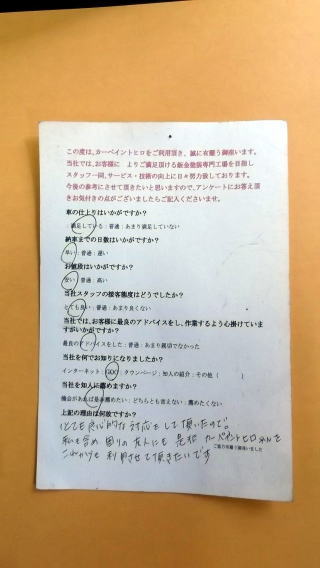 この度は、カーペイントヒロをご利用頂き、誠に有難う御座います。
当社では、お客様に よりご満足頂ける鈑金塗装専門工場を目指し
スタッフ一同、サービス・技術の向上に日々努力致しております。
今後の参考にさせて頂きたいと思いますので、アンケートにお答え頂
きお気付きの点がございましたらご記入くださいませ。
車の仕上りはいかがですか?
満足している：普通：あまり満足していない
納車までの日数はいかがですか?
早い：普通：遅い
お値段はいかがですか?
安い：普通：高い
当社スタッフの接客態度はどうでしたか?
とても良い：普通：あまり良くない
当社では、お客様に最良のアドバイスをし、作業するよう心掛けていま
すがいかがですか?
最良のアドバイスをした：普通：あまり親切でなかった
当社を何でお知りになりましたか?
インターネット：GOO：タウンページ：知人の紹介：その他（ ）
当社を知人に薦めますか?
機会があれば是非薦めたい：どちらとも言えない：薦めたくない
上記の理由は何故ですか?
とても良心的な対応をして頂いたので。
私も含め 周りの友人にも 是非 カーペイントヒロさんを
これからも 利用させて頂きたいです
ご協力有難う御座いました